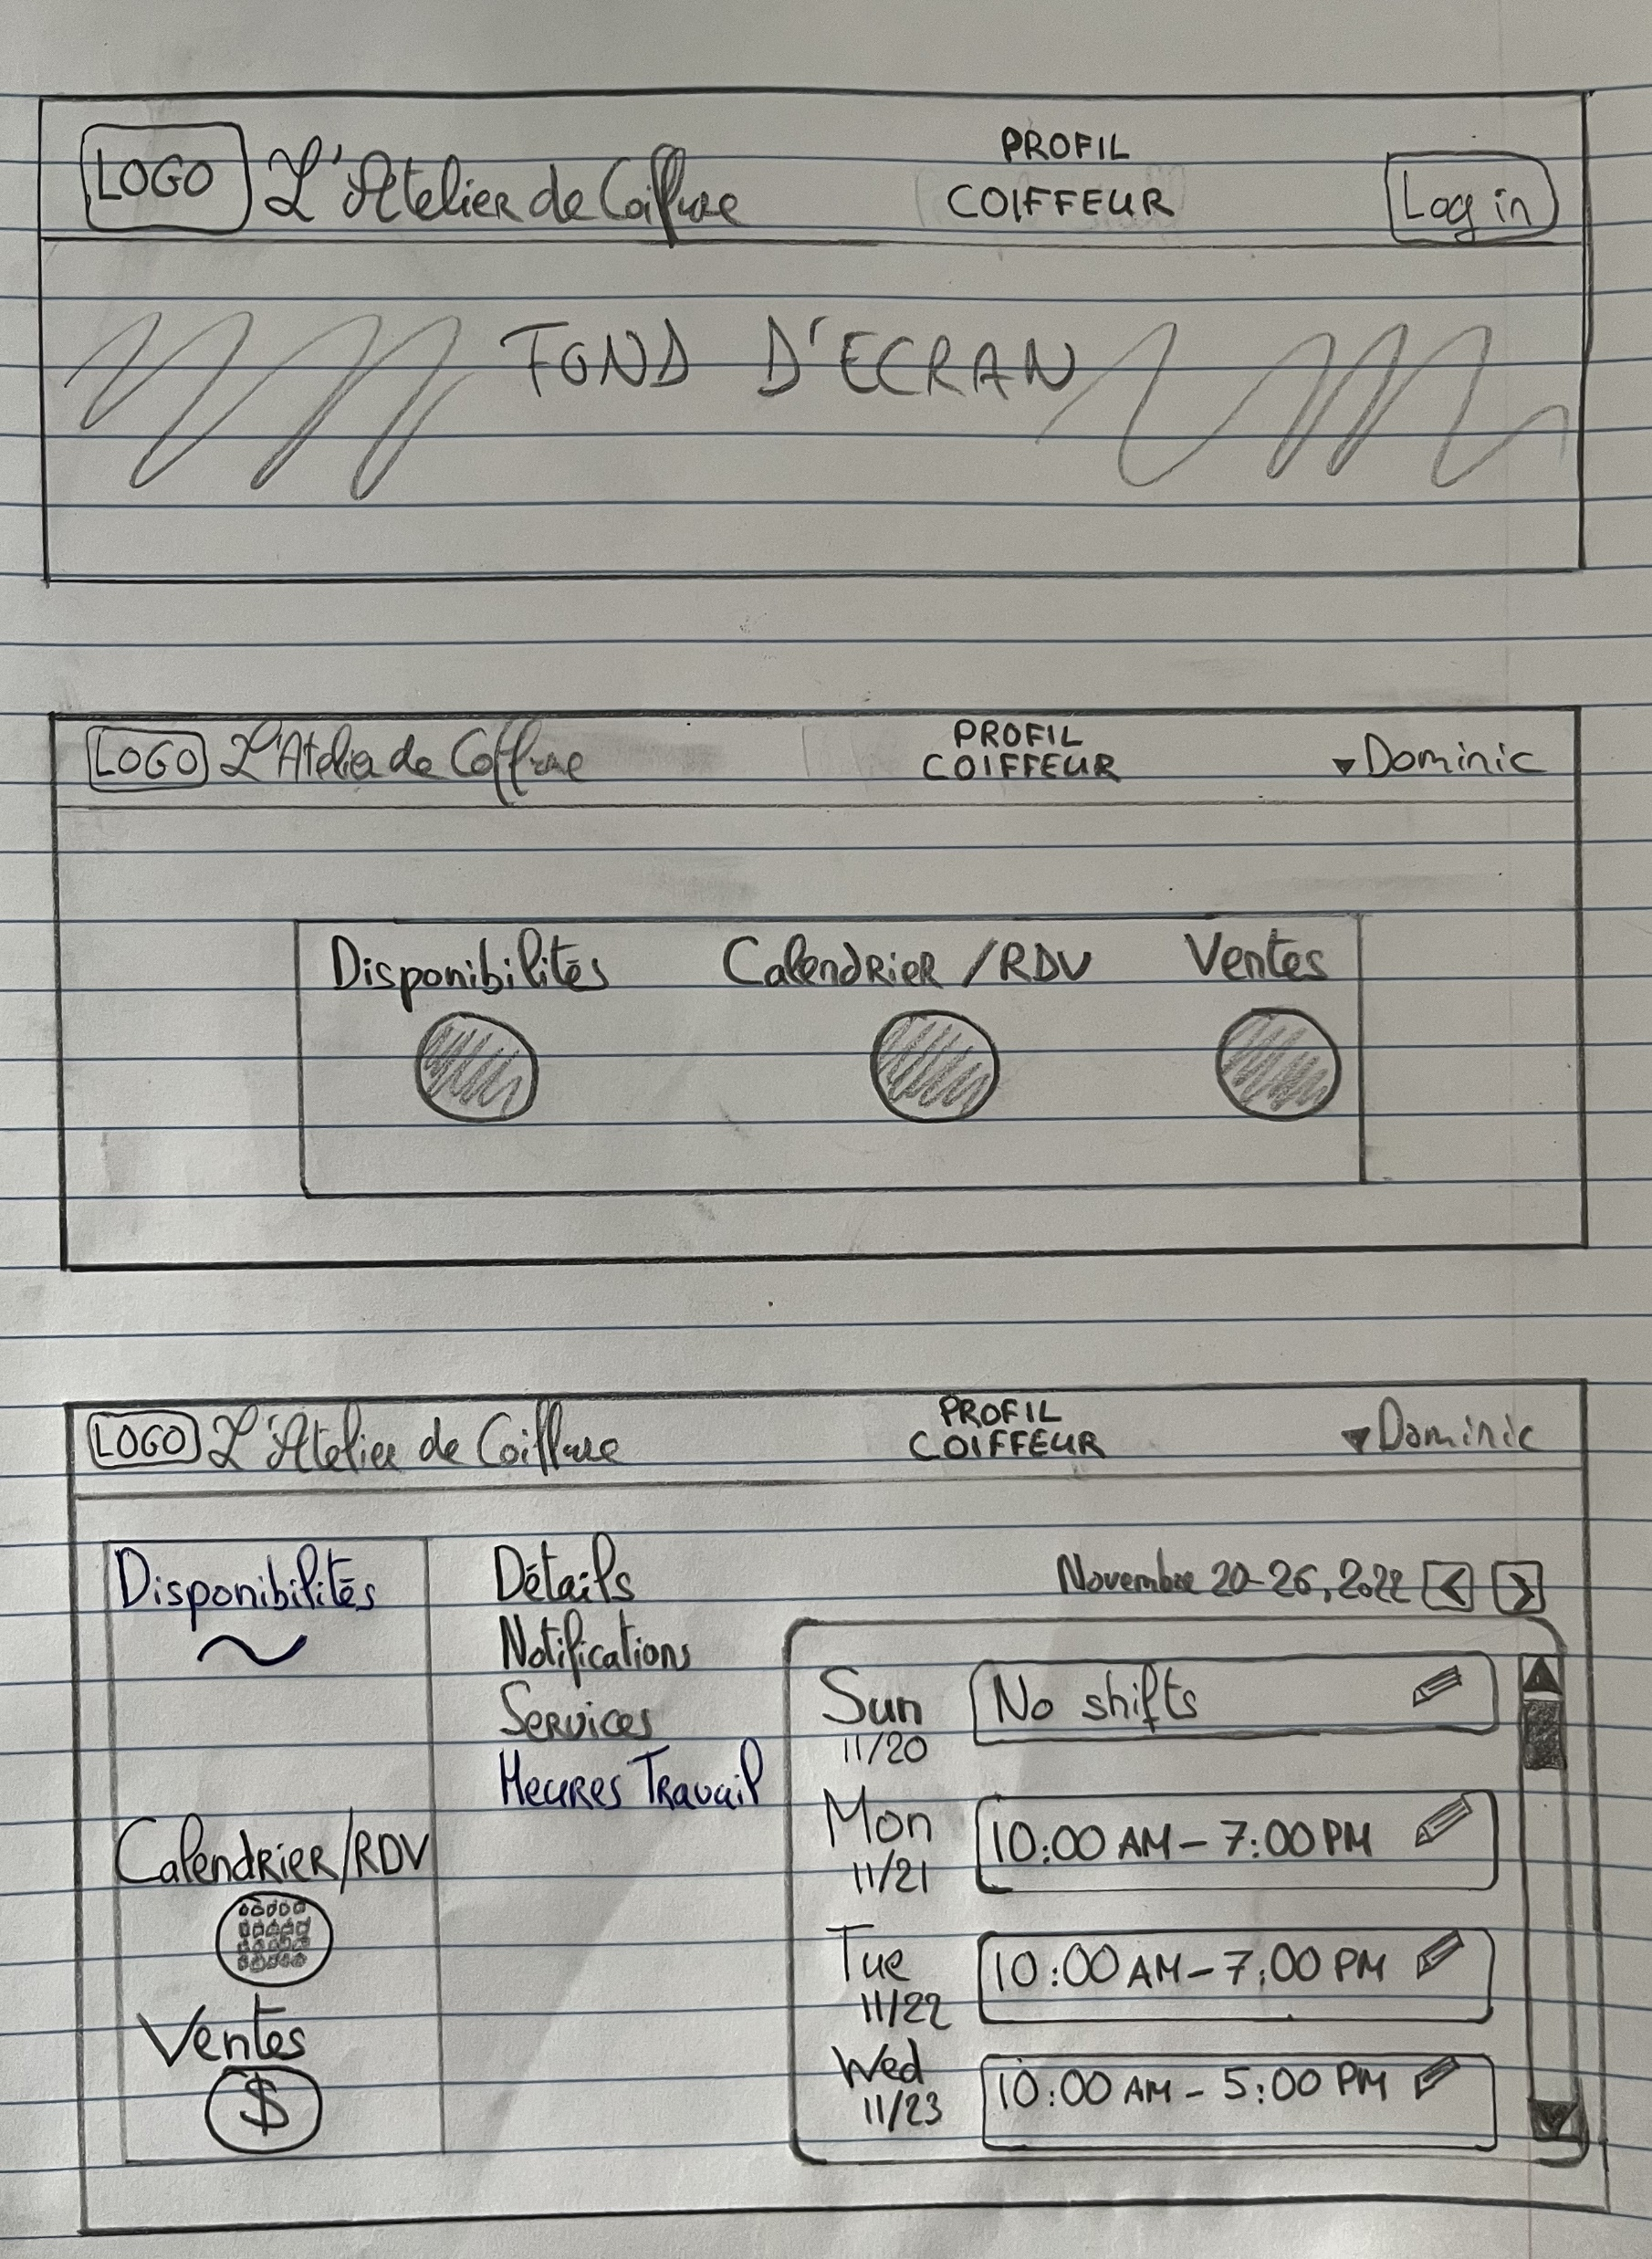 LOGO L'Atelier de Coiffure
PROFIL
COIFFEUR
Log in
FOND D'ECRAN
LOGO L'Atelier de Coiffure
PROFIL
COIFFEUR
Dominic
Disponibilités Calendrier /RDV Ventes
LOGO L'Atelier de Coiffure
PROFIL
COIFFEUR
Dominic
Disponibilités
Calendrier/RDV
Ventes
$
Détails
Notifications
Services
Heures Travail
Novembre 20-26, 2022 < >
Sun No shifts
11/20
Mon 10:00 AM - 7:00 PM
11/21
Tue 10:00 AM - 7:00 PM
11/22
Wed 10:00 AM - 5:00 PM
11/23